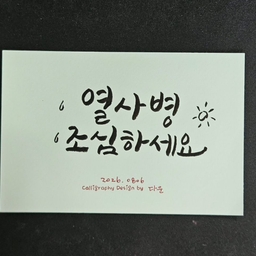 열사병
조심하세요
2026. 0806
Calligraphy Design by 다운